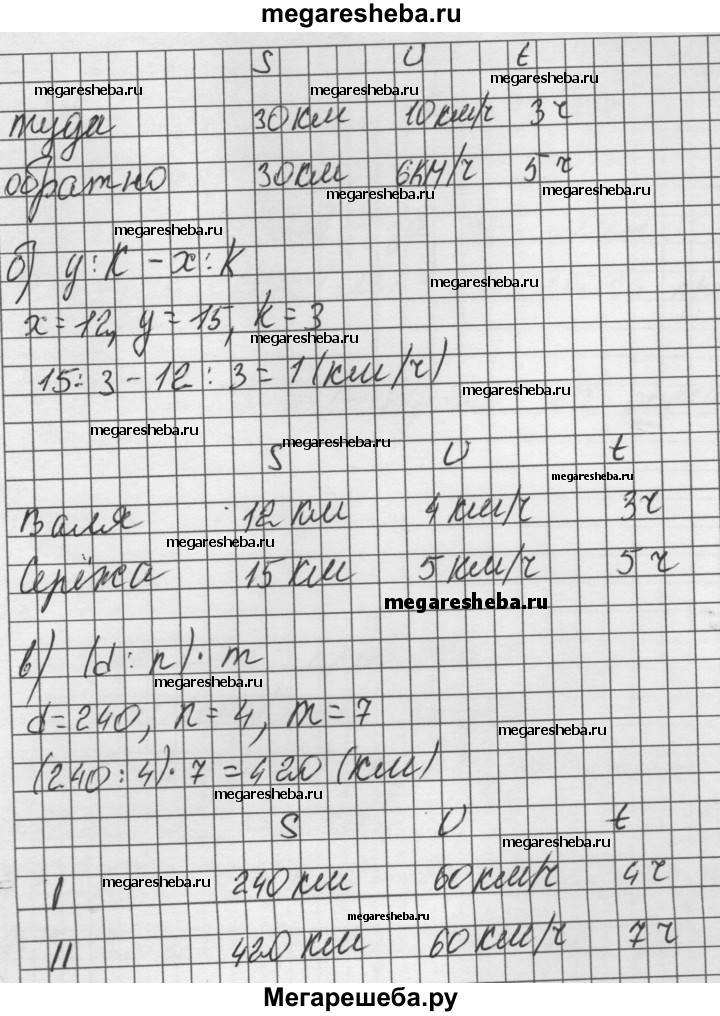 megaresheba.ru
S U t
megaresheba.ru megaresheba.ru megaresheba.ru
туда 30 км 10 км/ч 3 ч
обратно 30 км 6 км/ч 5 ч
megaresheba.ru megaresheba.ru
megaresheba.ru
б) y : k - x : k
megaresheba.ru
x = 12, y = 15, k = 3
megaresheba.ru
15 : 3 - 12 : 3 = 1 (км/ч)
megaresheba.ru
megaresheba.ru megaresheba.ru
S U t
megaresheba.ru
Валя 12 км 4 км/ч 3 ч
megaresheba.ru
Серёжа 15 км 5 км/ч 5 ч
megaresheba.ru
в) (d : n) · m
megaresheba.ru
d = 240, n = 4, m = 7
megaresheba.ru
(240 : 4) · 7 = 420 (км)
megaresheba.ru
S U t
megaresheba.ru
I 240 км 60 км/ч 4 ч
megaresheba.ru
megaresheba.ru
II 420 км 60 км/ч 7 ч
Мегарешеба.ру